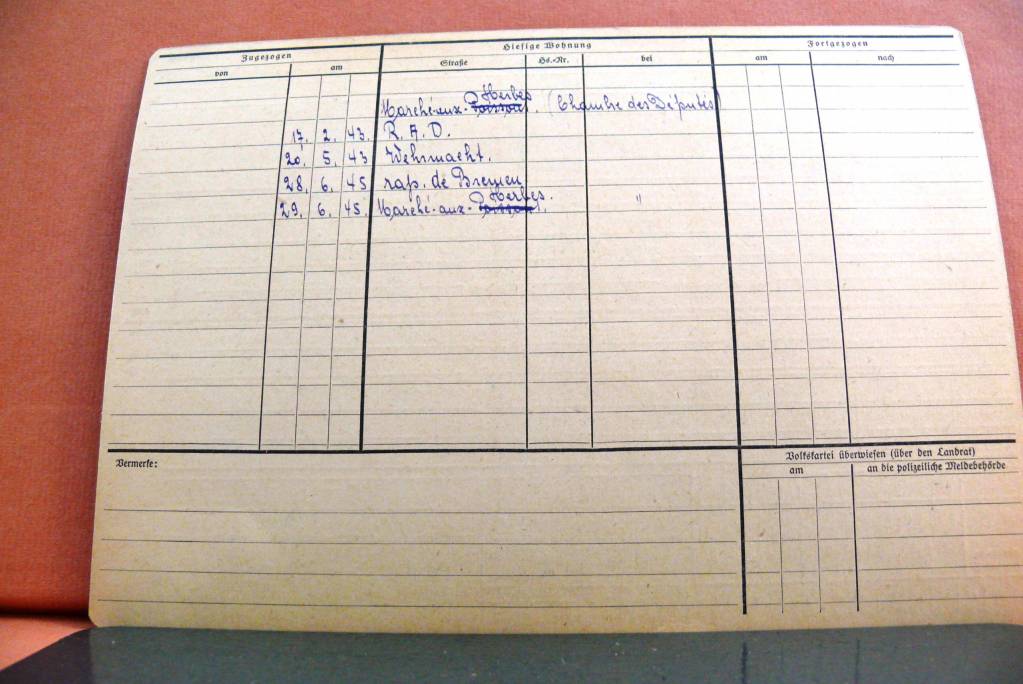 Zugezogen Hiesige Wohnung Fortgezogen
von am Straße Hs.-Nr. bei am nach
Herbes
Marché-aux-Poissons. (Chambre des Députés)
17. 2. 43. R. A. D.
20. 5. 43 Wehrmacht.
28. 6. 45 rap. de Bremen
Herbes.
29. 6. 45. Marché-aux-Poissons. "
Vermerke: Volkskartei überwiesen (über den Landrat)
am an die polizeiliche Meldebehörde